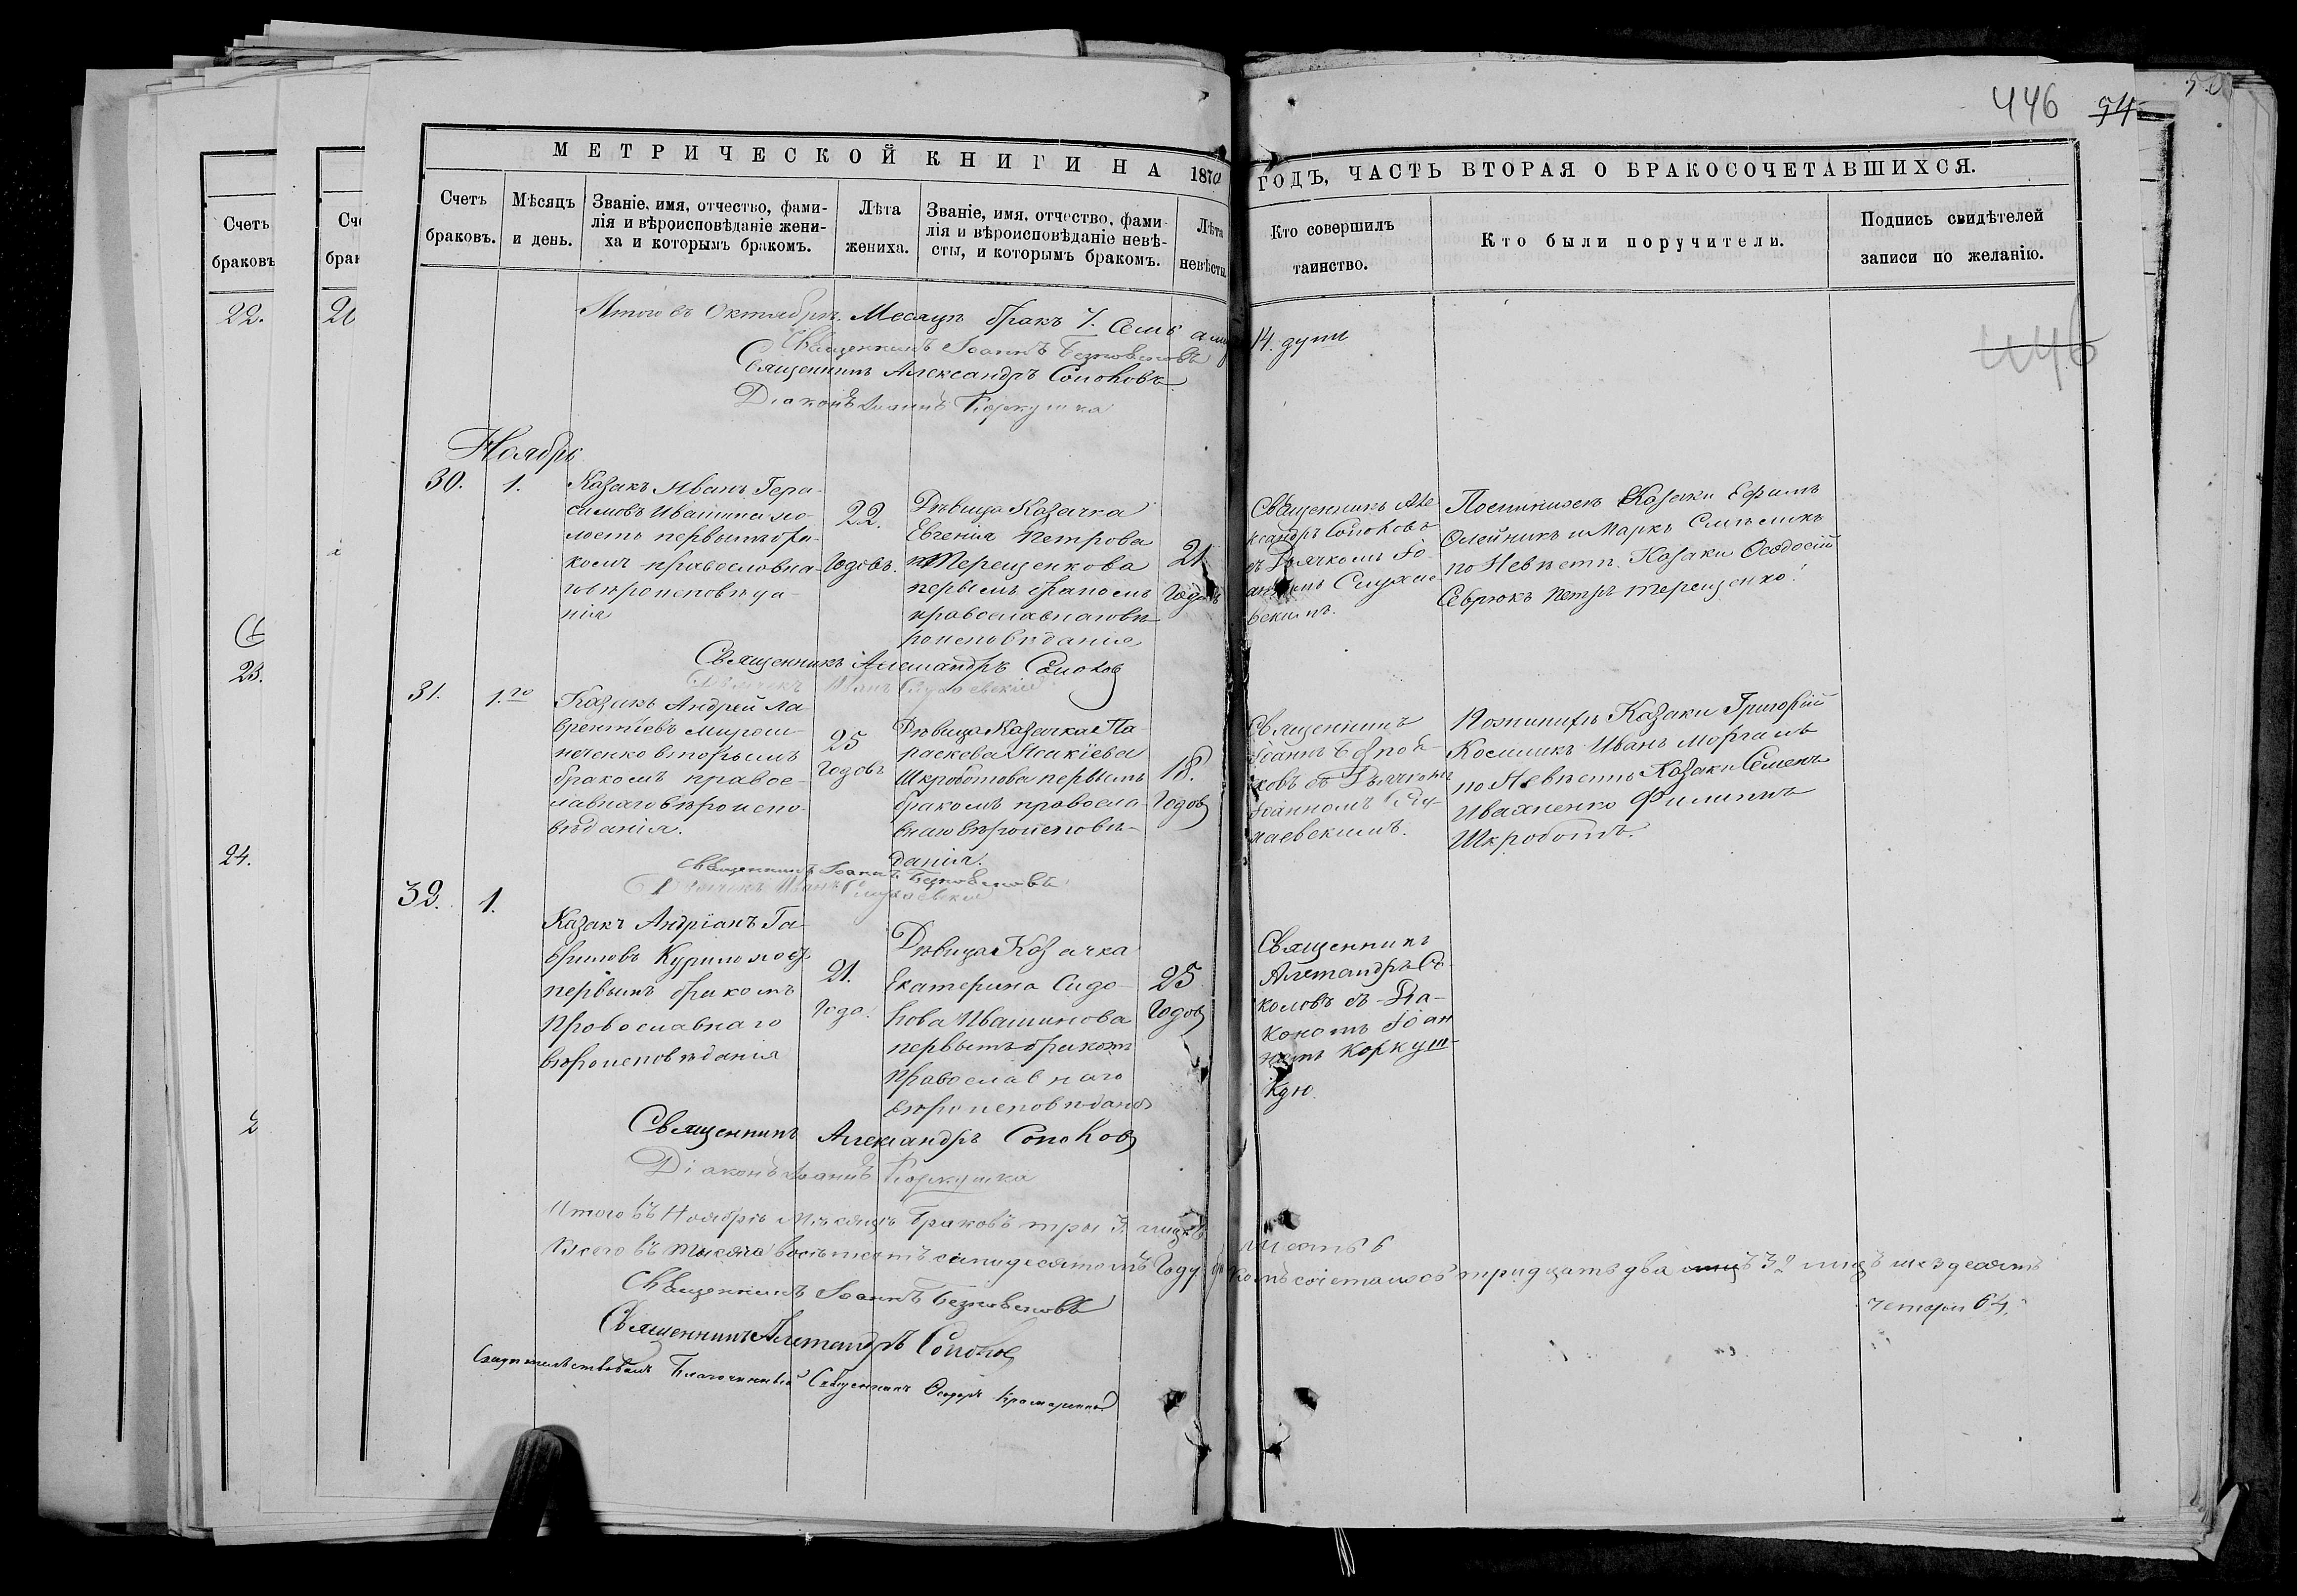 446 54
МЕТРИЧЕСКОЙ КНИГИ НА 1870 ГОДЪ, ЧАСТЬ ВТОРАЯ О БРАКОСОЧЕТАВШИХСЯ.
Счетъ браковъ.
Мѣсяцъ и день.
Званіе, имя, отчество, фами-
лія и вѣроисповѣданіе жени-
ха и которымъ бракомъ.
Лѣта жениха.
Званіе, имя, отчество, фами-
лія и вѣроисповѣданіе невѣ-
сты, и которымъ бракомъ.
Лѣта невѣсты.
Кто совершилъ таинство.
Кто были поручители.
Подпись свидѣтелей
записи по желанію.
Счетъ
браковъ
22.
23.
24.
Итого въ Октябрѣ Месяцѣ бракъ 7. семь
14. душъ
446
Священникъ Іоаннъ
Священникъ Александръ Соколовъ
Діаконъ Іоаннъ Коркушка
Ноябрь
30.
1.
Казакъ Иванъ Гера-
симовъ
первымъ бра-
комъ православна-
го вѣроисповѣда-
нія
22.
Годовъ.
Дѣвица Казачка
Евгенія Петрова
Терещенкова
первымъ бракомъ
православнаго вѣ-
роисповѣданія
21
Годъ
Священникъ Але
ксандръ Соколовъ
съ Дьячкомъ Іо
анномъ
По Женихѣ Казаки Ефимъ
Олейникъ и Маркъ
по Невѣстѣ Казаки Ѳеодосій
Севрюкъ Петръ Терещенко.
Священникъ Александръ Соколовъ
31.
1.го
Казакъ Андрей Ла-
врентіевъ Мирош-
ниченко вторымъ
бракомъ правос-
лавнаго вѣроиспо-
вѣданія.
25
Годовъ
Дѣвица Казачка Па-
раскева Исакіева
Шкроботова первымъ
бракомъ правосла-
внаго вѣроисповѣ-
данія.
18.
Годовъ
Священникъ
Іоаннъ
съ Дьячкомъ
Іоанномъ
По Женихѣ Казаки Григорій
Косминъ Иванъ Моргалъ
по Невѣстѣ Казаки Семенъ
Иваненко Филиппъ
Шкроботъ.
Священникъ Іоаннъ
32.
1.
Казакъ Андріанъ Га-
вриловъ
первымъ бракомъ
Православнаго
вѣроисповѣданія
21.
Года.
Дѣвица Казачка
Екатерина Сидо-
рова Ивашинова
первымъ бракомъ
Православнаго
вѣроисповѣданія
25
Годовъ
Священникъ
Александръ Со-
коловъ съ Діа-
кономъ Іоан
номъ Коркуш-
кою
Священникъ Александръ Соколовъ
Діаконъ Іоаннъ Коркушка
Итого въ Ноябрѣ Мѣсяцѣ браковъ три 3. лицъ шесть 6
Всего въ тысяча восьмсотъ семидесятомъ Году
тридцать два 32 лицъ шездесятъ
четыри 64.
Священникъ Іоаннъ
Священникъ Александръ Соколовъ
Свидѣтельствовалъ Благочинный Священникъ Ѳеодоръ